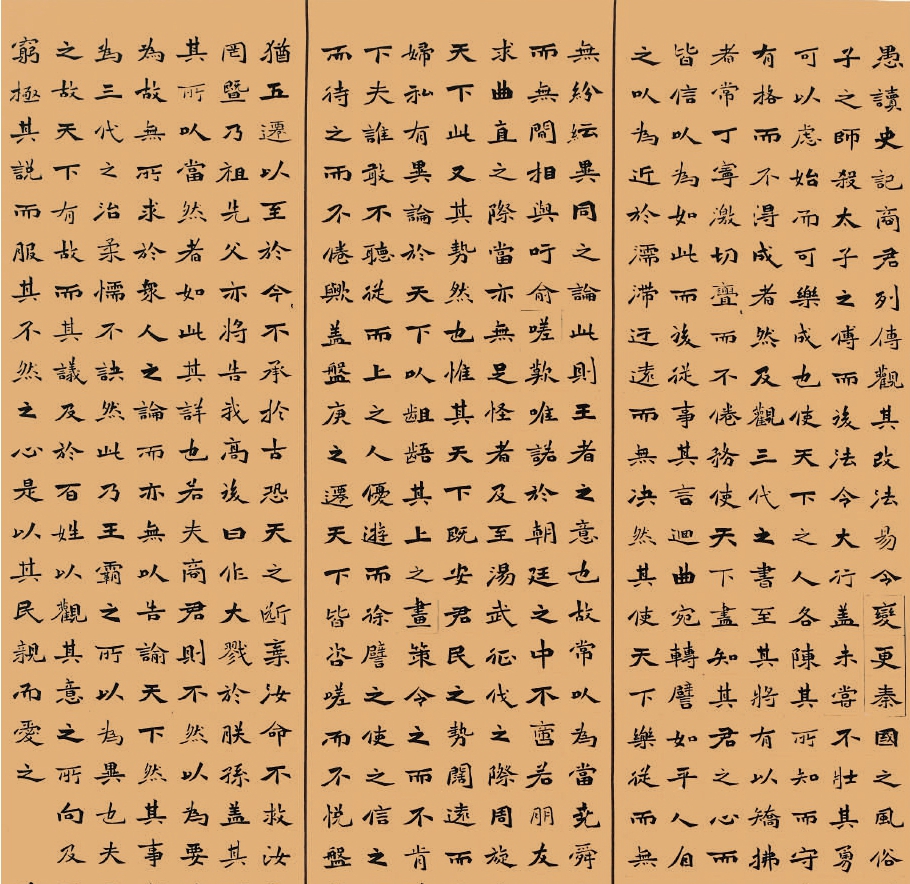 愚讀史記商君列傳觀其改法易令變更秦國之風俗
子之師殺太子之傅而後法令大行盖未嘗不壯其勇
可以慮始而可樂成也使天下之人各陳其所知而守
有格而不得成者然及觀三代之書至其將有以矯拂
者常丁寧激切亹而不倦務使天下盡知其君之心而
皆信以為如此而後從事其言迴曲宛轉譬如平人自
之以為近於濡滯迂遠而無决然其使天下樂從而無
無紛紜異同之論此則王者之意也故常以為當堯舜
而無間相與吁俞嗟歎唯諾於朝廷之中不啻若朋友
求曲直之際當亦無足怪者及至湯武征伐之際周旋
天下此又其勢然也惟其天下既安君民之勢闊遠而
婦私有異論於天下以齟齬其上之畫策令之而不肯
下夫誰敢不聽從而上之人優遊而徐譬之使之信之
而待之而不倦歟盖盤庚之遷天下皆咨嗟而不悅盤
猶五遷以至於今不承於古恐天之断棄汝命不救汝
罔暨乃祖先父亦將告我高後曰作大戮於朕孫盖其
其所以當然者如此其詳也若夫商君則不然以為要
為故無所求於衆人之論而亦無以告諭天下然其事
為三代之治柔懦不訣然此乃王霸之所以為異也夫
之故天下有故而其議及於百姓以觀其意之所向及
窮極其説而服其不然之心是以其民親而愛之